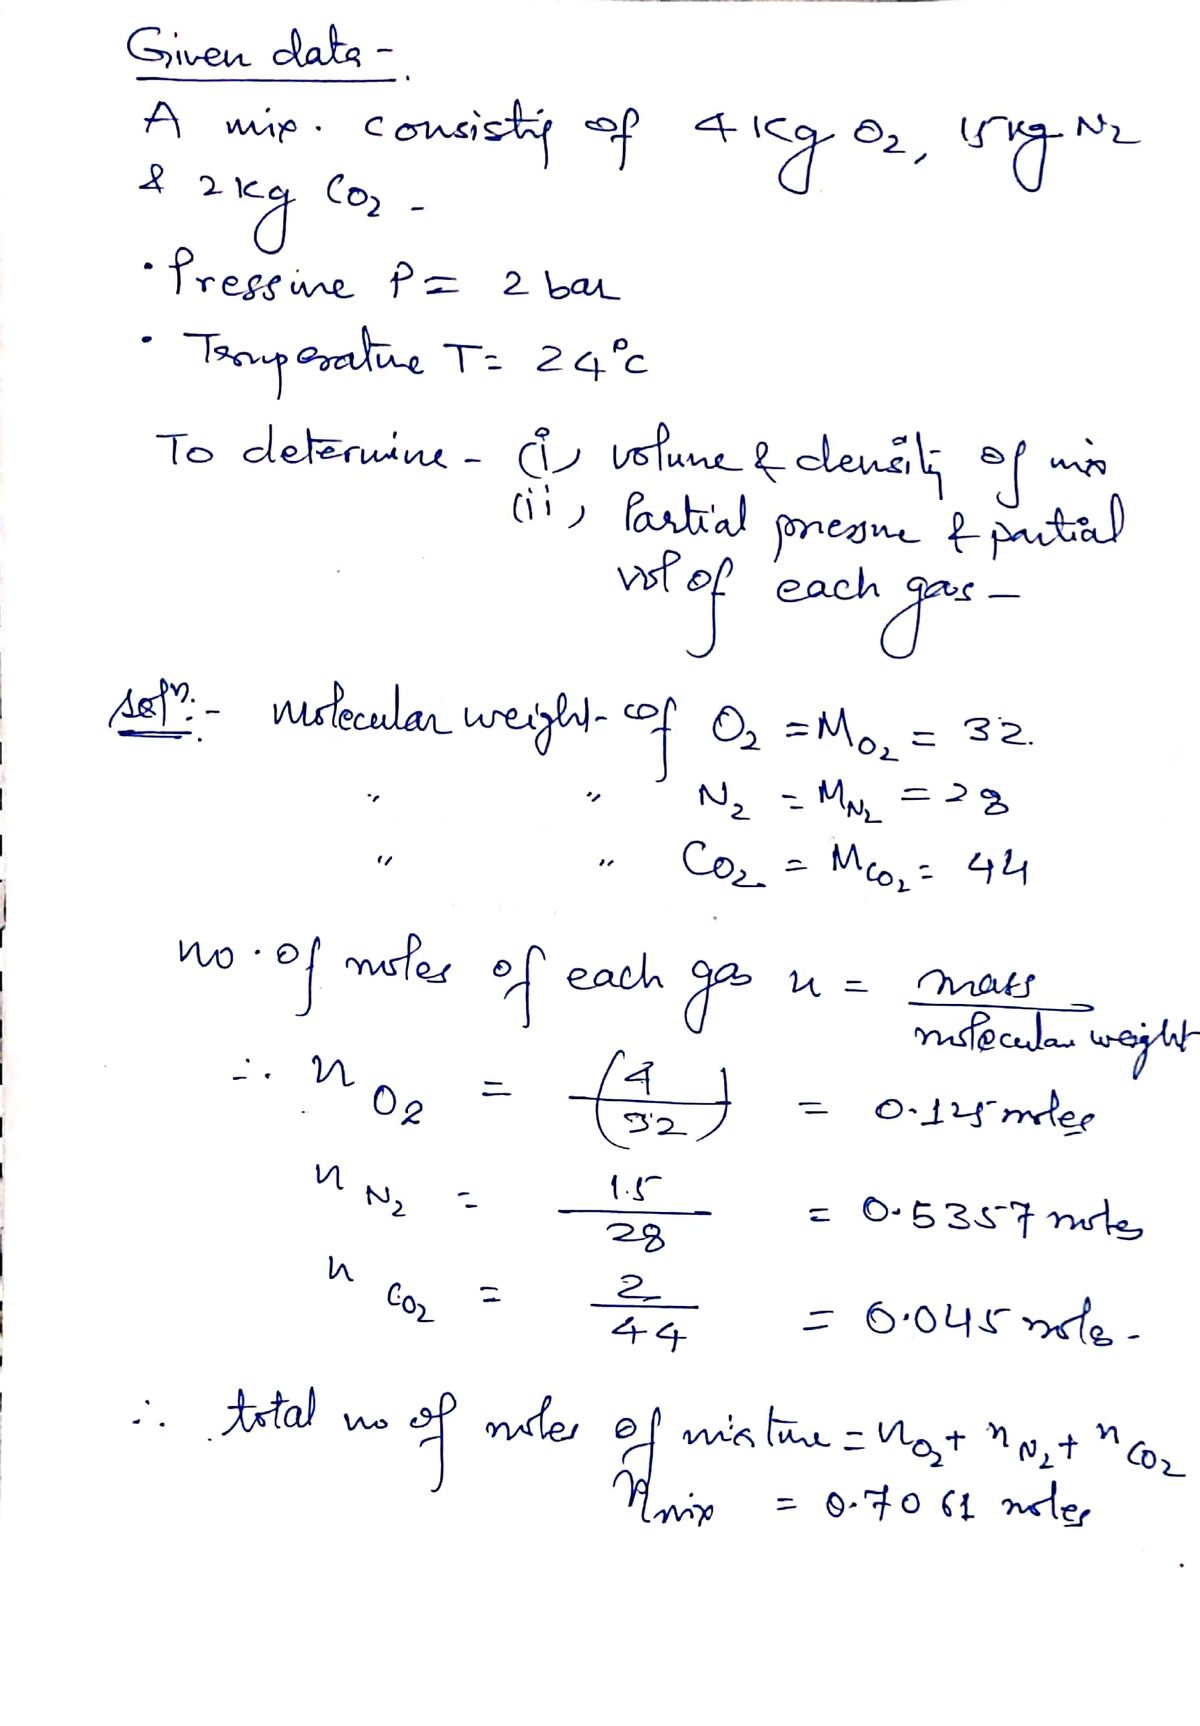 Given data -
A mix. consistig of 4 Kg O2, 15 kg N2
& 2 kg CO2 -
· Pressure P = 2 bar
· Temperature T = 24°c
To determine - (i) volume & density of mix
(ii) Partial pressure & partial
vol of each gas -
solⁿ:- molecular weight of O2 = MO2 = 32.
" " N2 = MN2 = 28
" " CO2 = MCO2 = 44
no. of moles of each gas n = mass / molecular weight
∴ nO2 = (4/32) = 0.125 moles
nN2 = 15/28 = 0.5357 moles
nCO2 = 2/44 = 0.045 mols -
∴ total no of moles of mixture = nO2 + nN2 + nCO2
nmix = 0.7061 moles